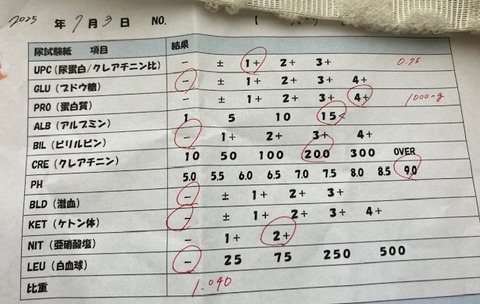 2025 年 7月 3日 NO.
尿試験紙 項目 結果
UPC (尿蛋白/クレアチニン比) - ± 1+ 2+ 3+ 0.75
GLU (ブドウ糖) - ± 1+ 2+ 3+ 4+
PRO (蛋白質) - ± 1+ 2+ 3+ 4+ 1000mg
ALB (アルブミン) 1 5 10 15<
BIL (ビリルビン) - 1+ 2+ 3+ 4+
CRE (クレアチニン) 10 50 100 200 300 OVER
PH 5.0 5.5 6.0 6.5 7.0 7.5 8.0 8.5 9.0
BLD (潜血) - ± 1+ 2+ 3+
KET (ケトン体) - ± 1+ 2+ 3+ 4+
NIT (亜硝酸塩) - 1+ 2+
LEU (白血球) - 25 75 250 500
比重 1.040